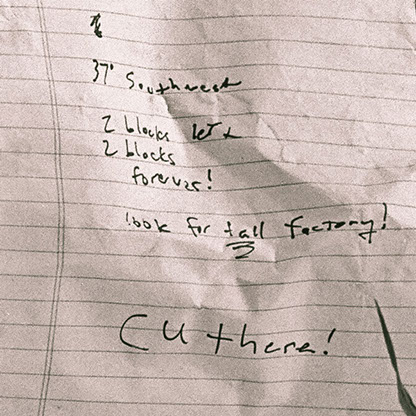 37° Southwest
2 blocks left
2 blocks
forever!
look for tall factory!
CU there!